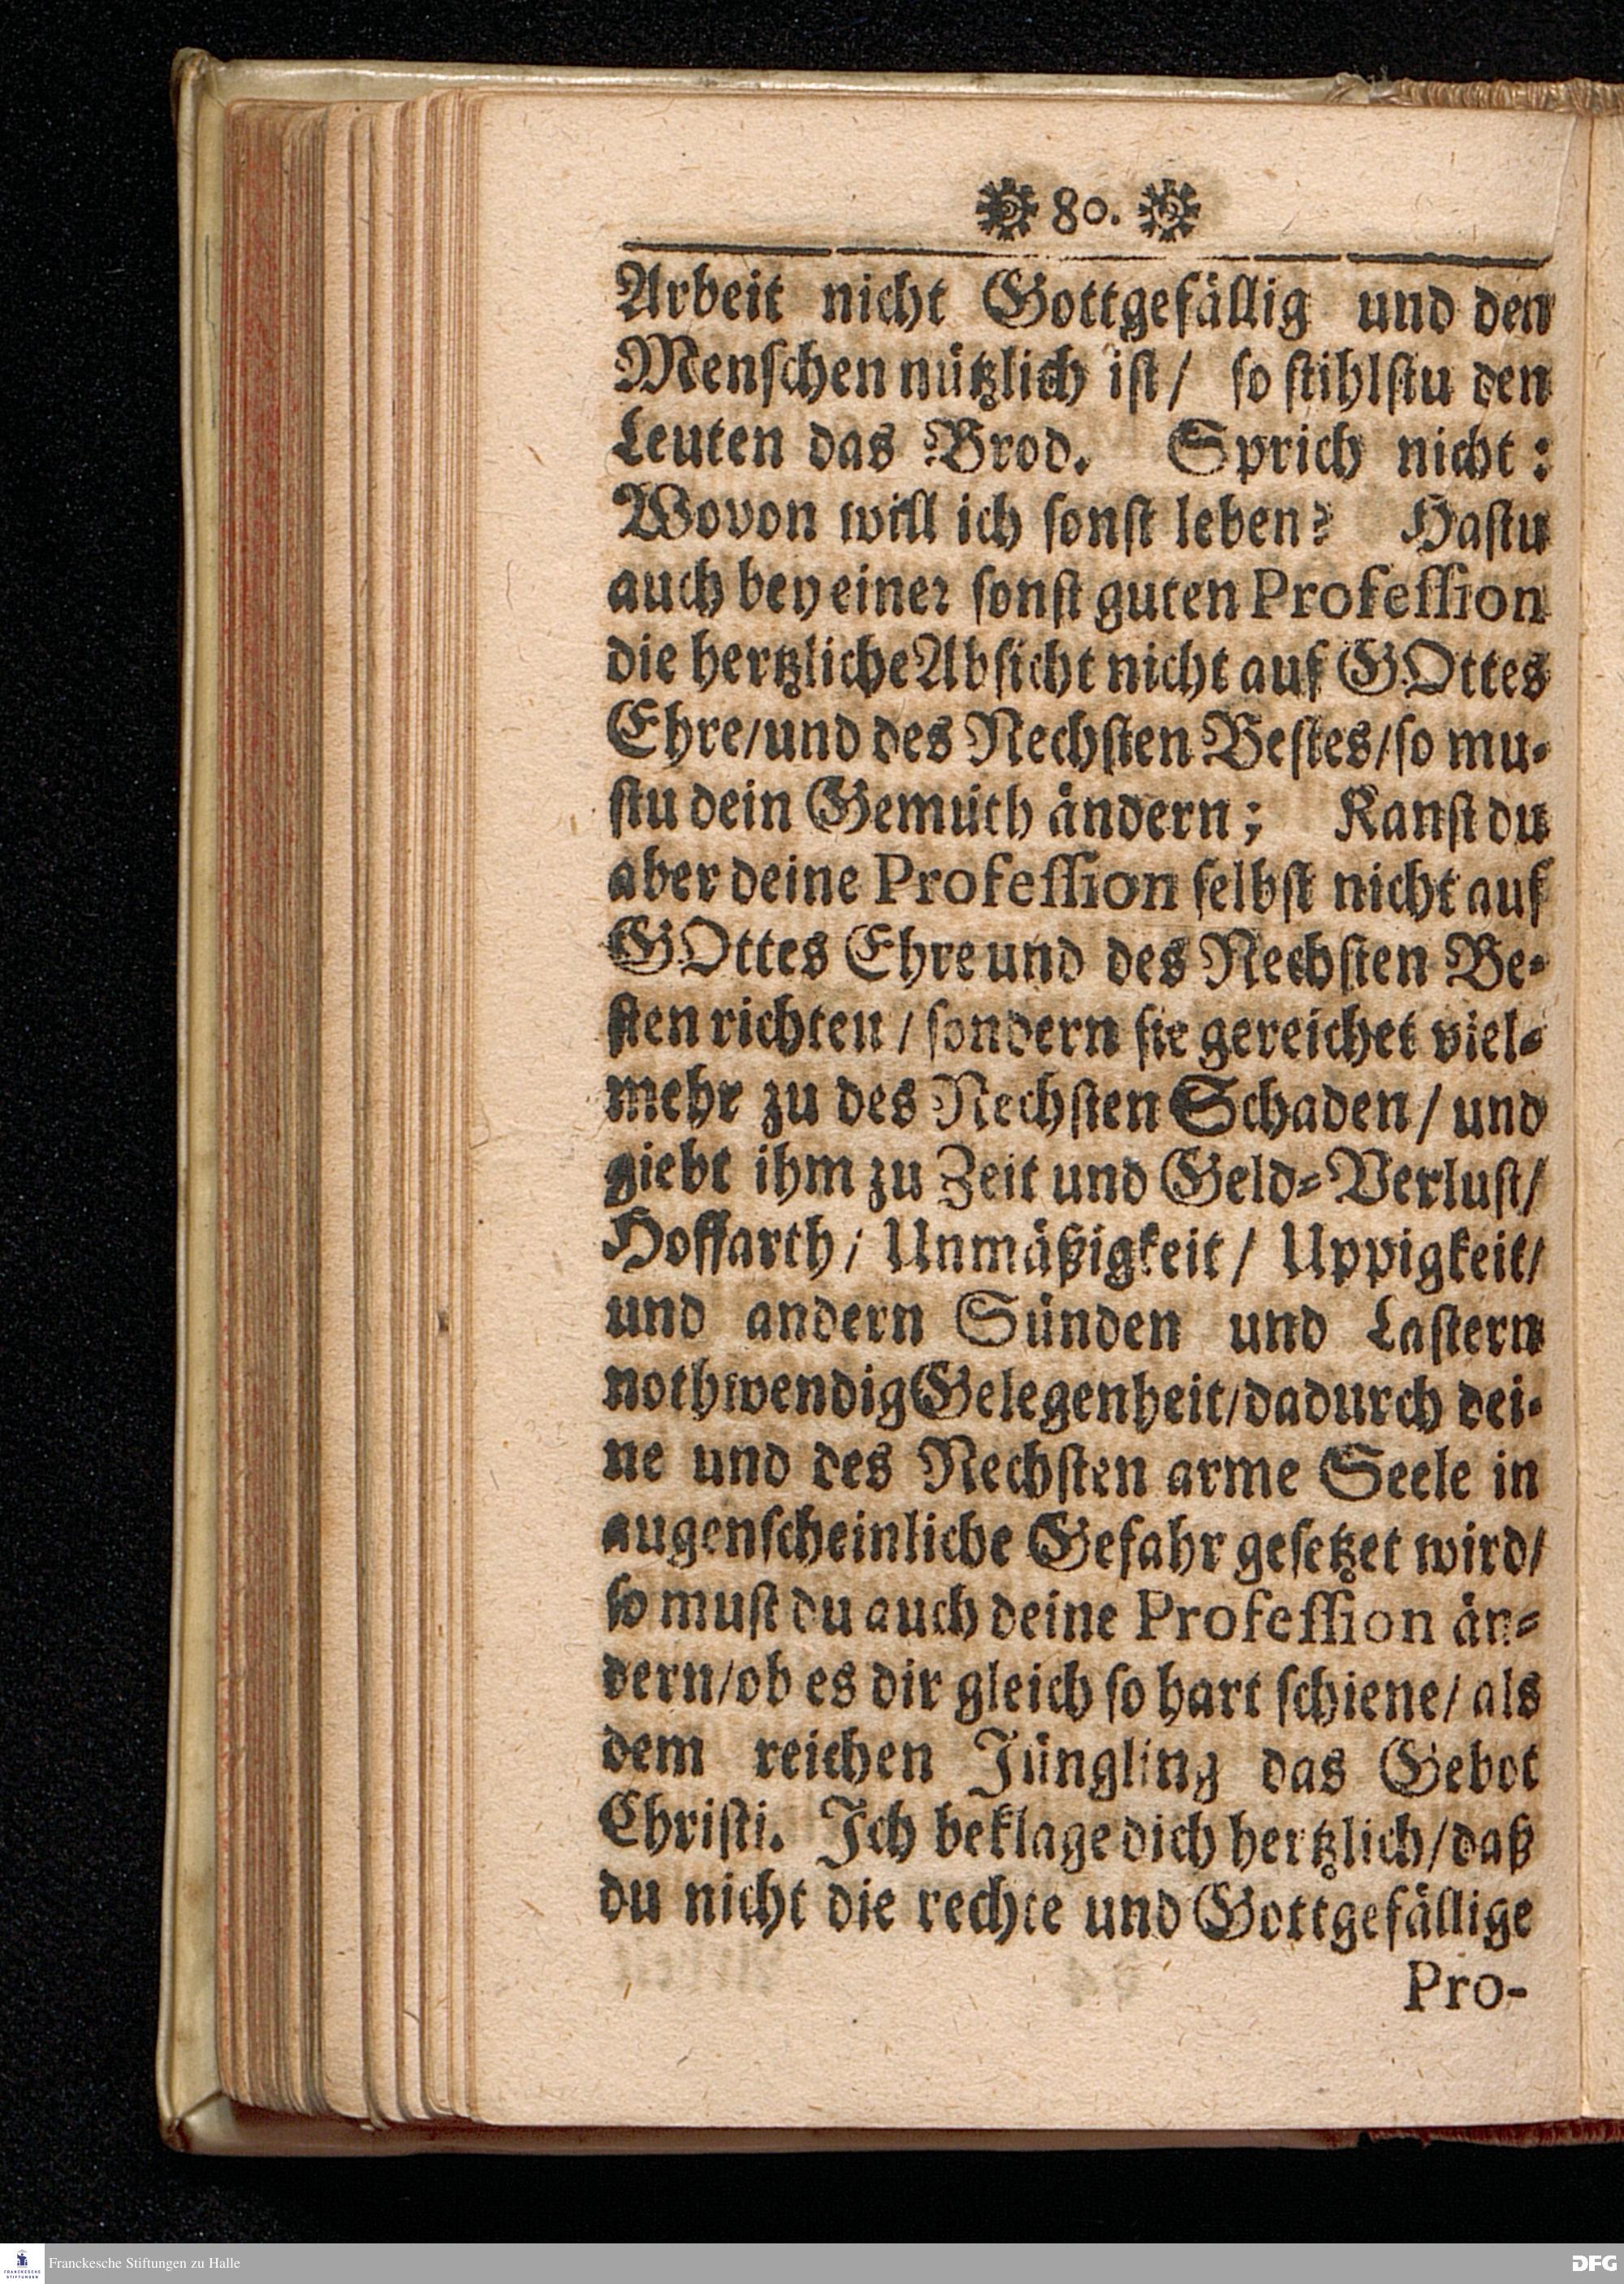 80.
Arbeit nicht Gottgefällig und den
Menschen nützlich ist/ so stihlstu den
Leuten das Brod. Sprich nicht:
Wovon will ich sonst leben? Hastu
auch bey einer sonst guten Profession
die hertzliche Absicht nicht auf GOttes
Ehre/und des Nechsten Bestes/so mu-
stu dein Gemüth ändern; Kanst du
aber deine Profession selbst nicht auf
GOttes Ehre und des Nechsten Be-
sten richten/ sondern sie gereichet viel-
mehr zu des Nechsten Schaden/ und
giebt ihm zu Zeit und Geld-Verlust/
Hoffarth/ Unmäßigkeit/ Uppigkeit/
und andern Sünden und Lastern
nothwendig Gelegenheit/dadurch dei-
ne und des Nechsten arme Seele in
augenscheinliche Gefahr gesetzet wird/
so must du auch deine Profession än-
dern/ob es dir gleich so hart schiene/ als
dem reichen Jüngling das Gebot
Christi. Ich beklage dich hertzlich/daß
du nicht die rechte und Gottgefällige
Pro-
FRANCKESCHE
STIFTUNGEN
Franckesche Stiftungen zu Halle
DFG